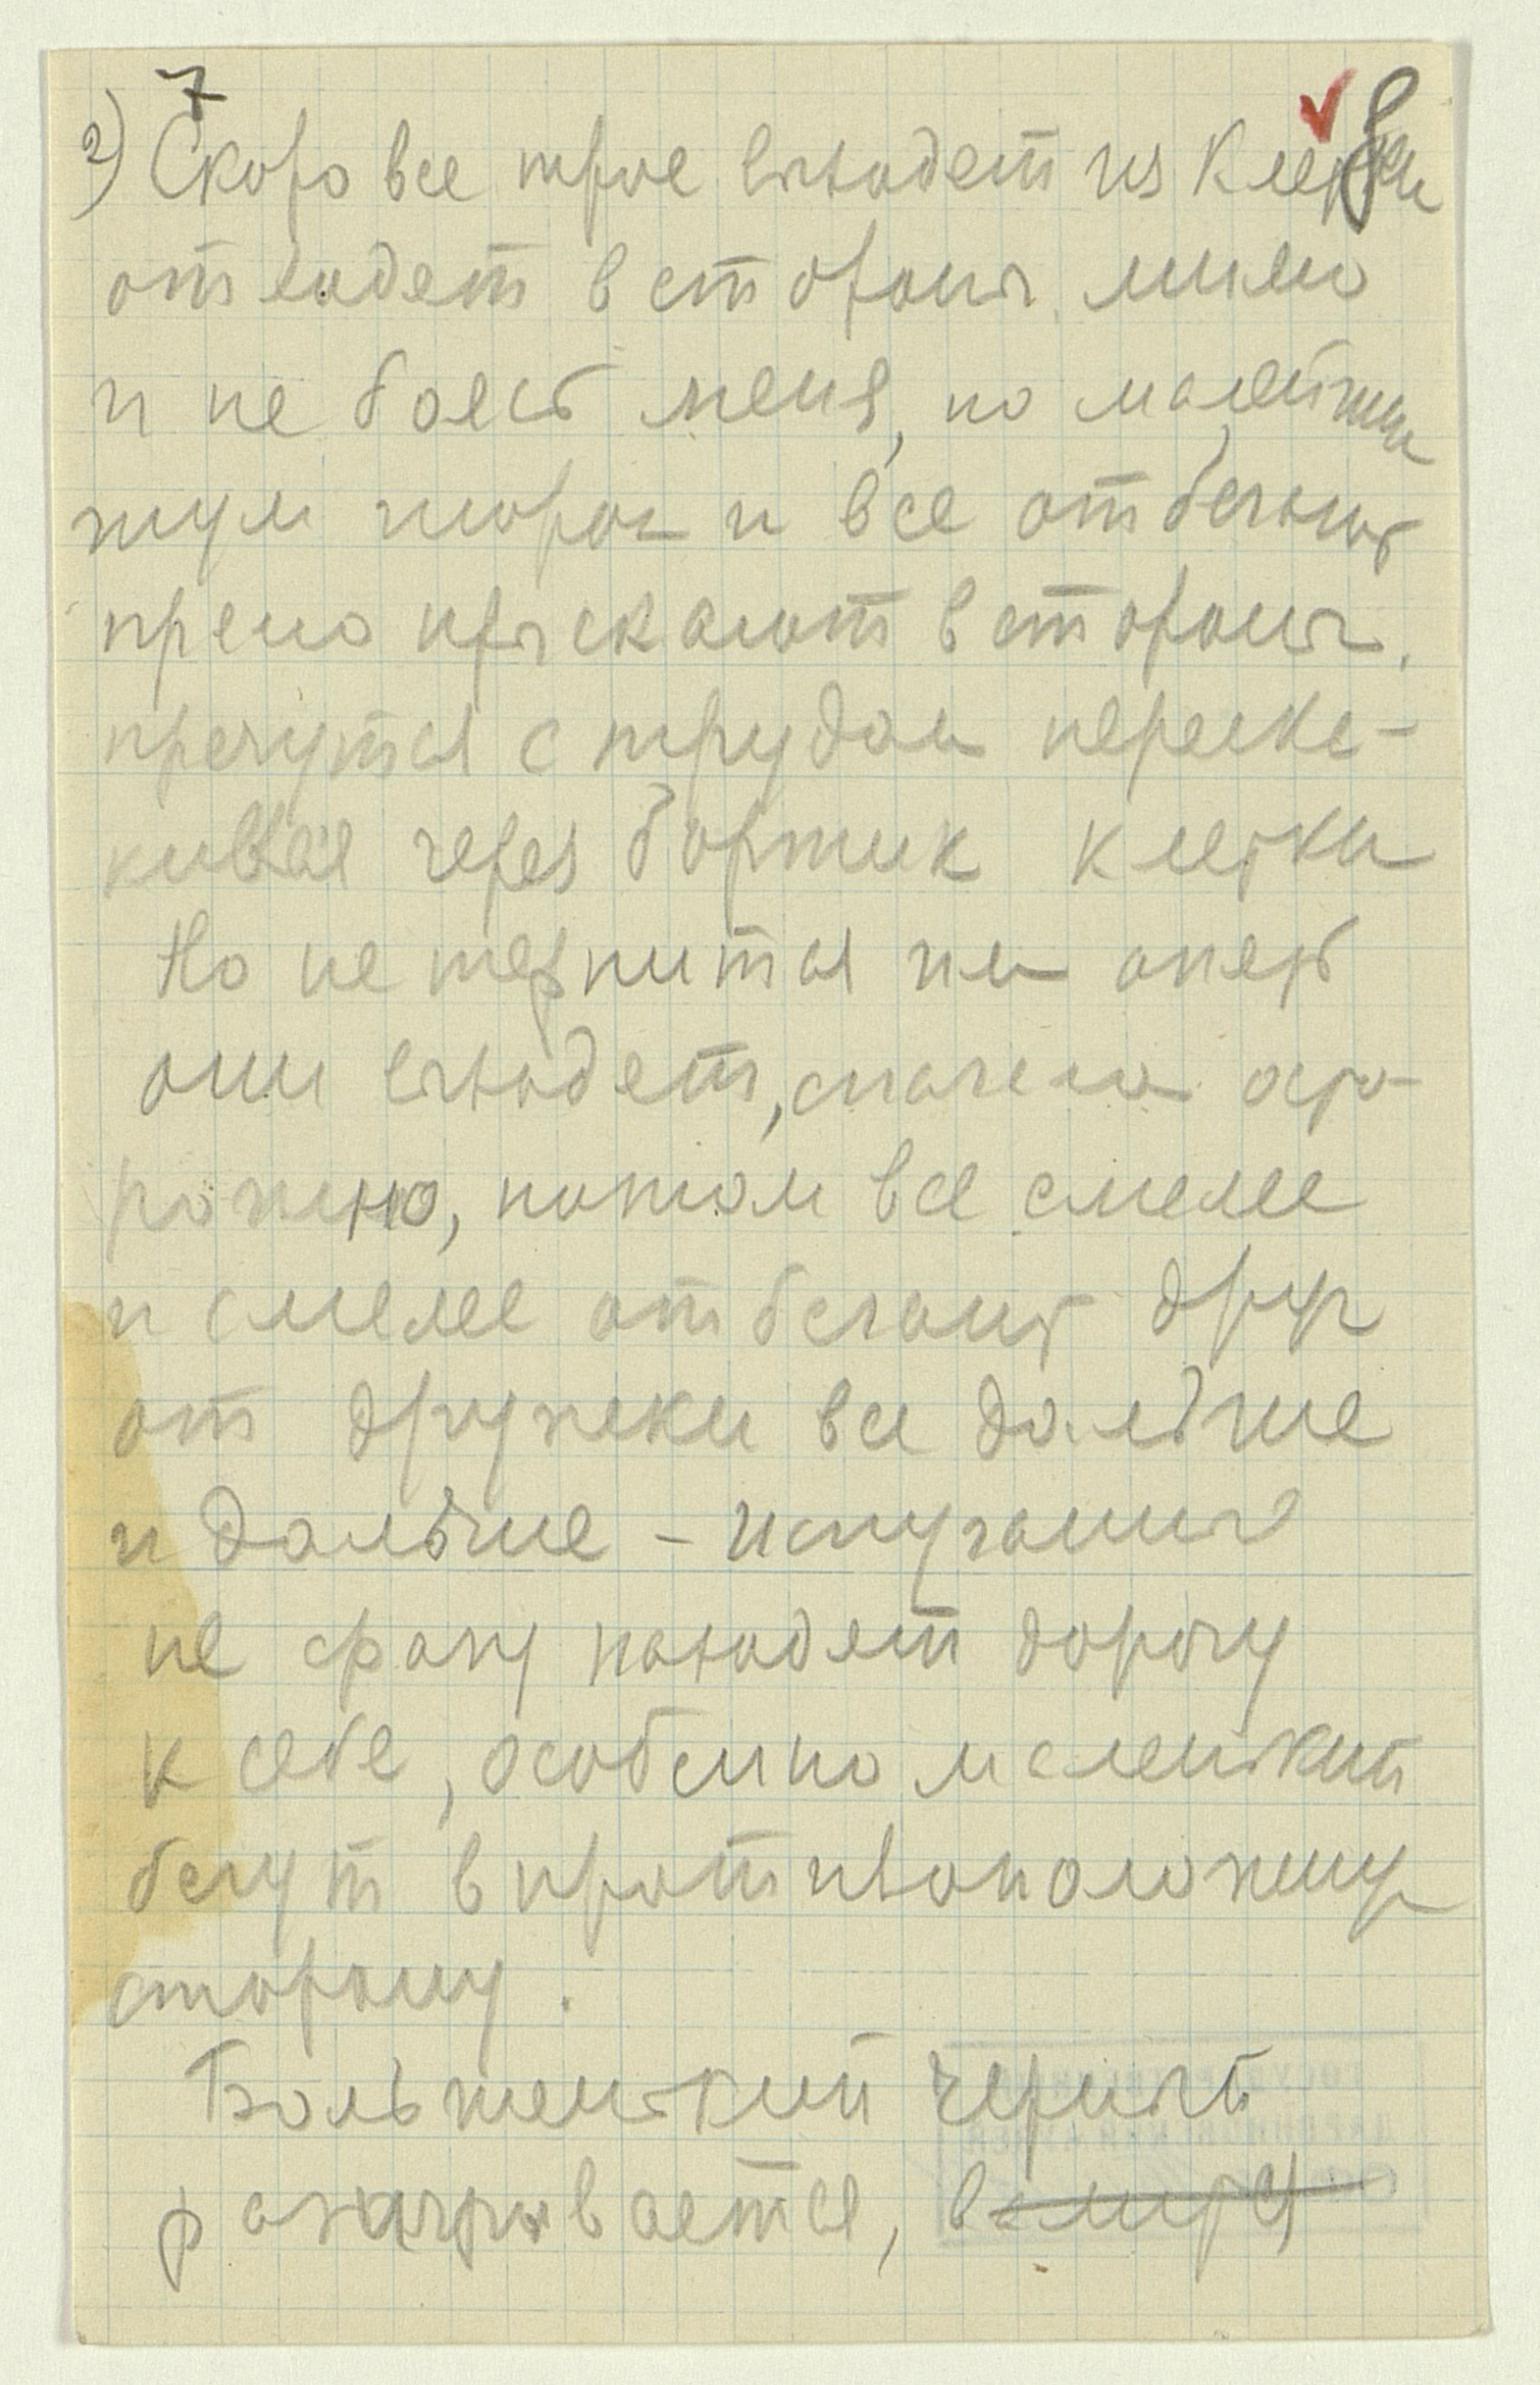 7
8
2) Скоро все трое выходят из клетки
отходят в стороны мимо
и не боясь меня, но малейший
шум шорох и все отбегают
прямо прыскают в стороны.
прячутся с трудом переска-
кивая через бортик клетки
Но не терпится им опять
они выходят, сначала осто-
рожно, потом все смелее
и смелее отбегают друг
от дружки все дальше
и дальше – испуганные
не сразу находят дорогу
к себе, особенно маленький
бегут в противоположную
сторону.
Большенький черный
разыгрывается,